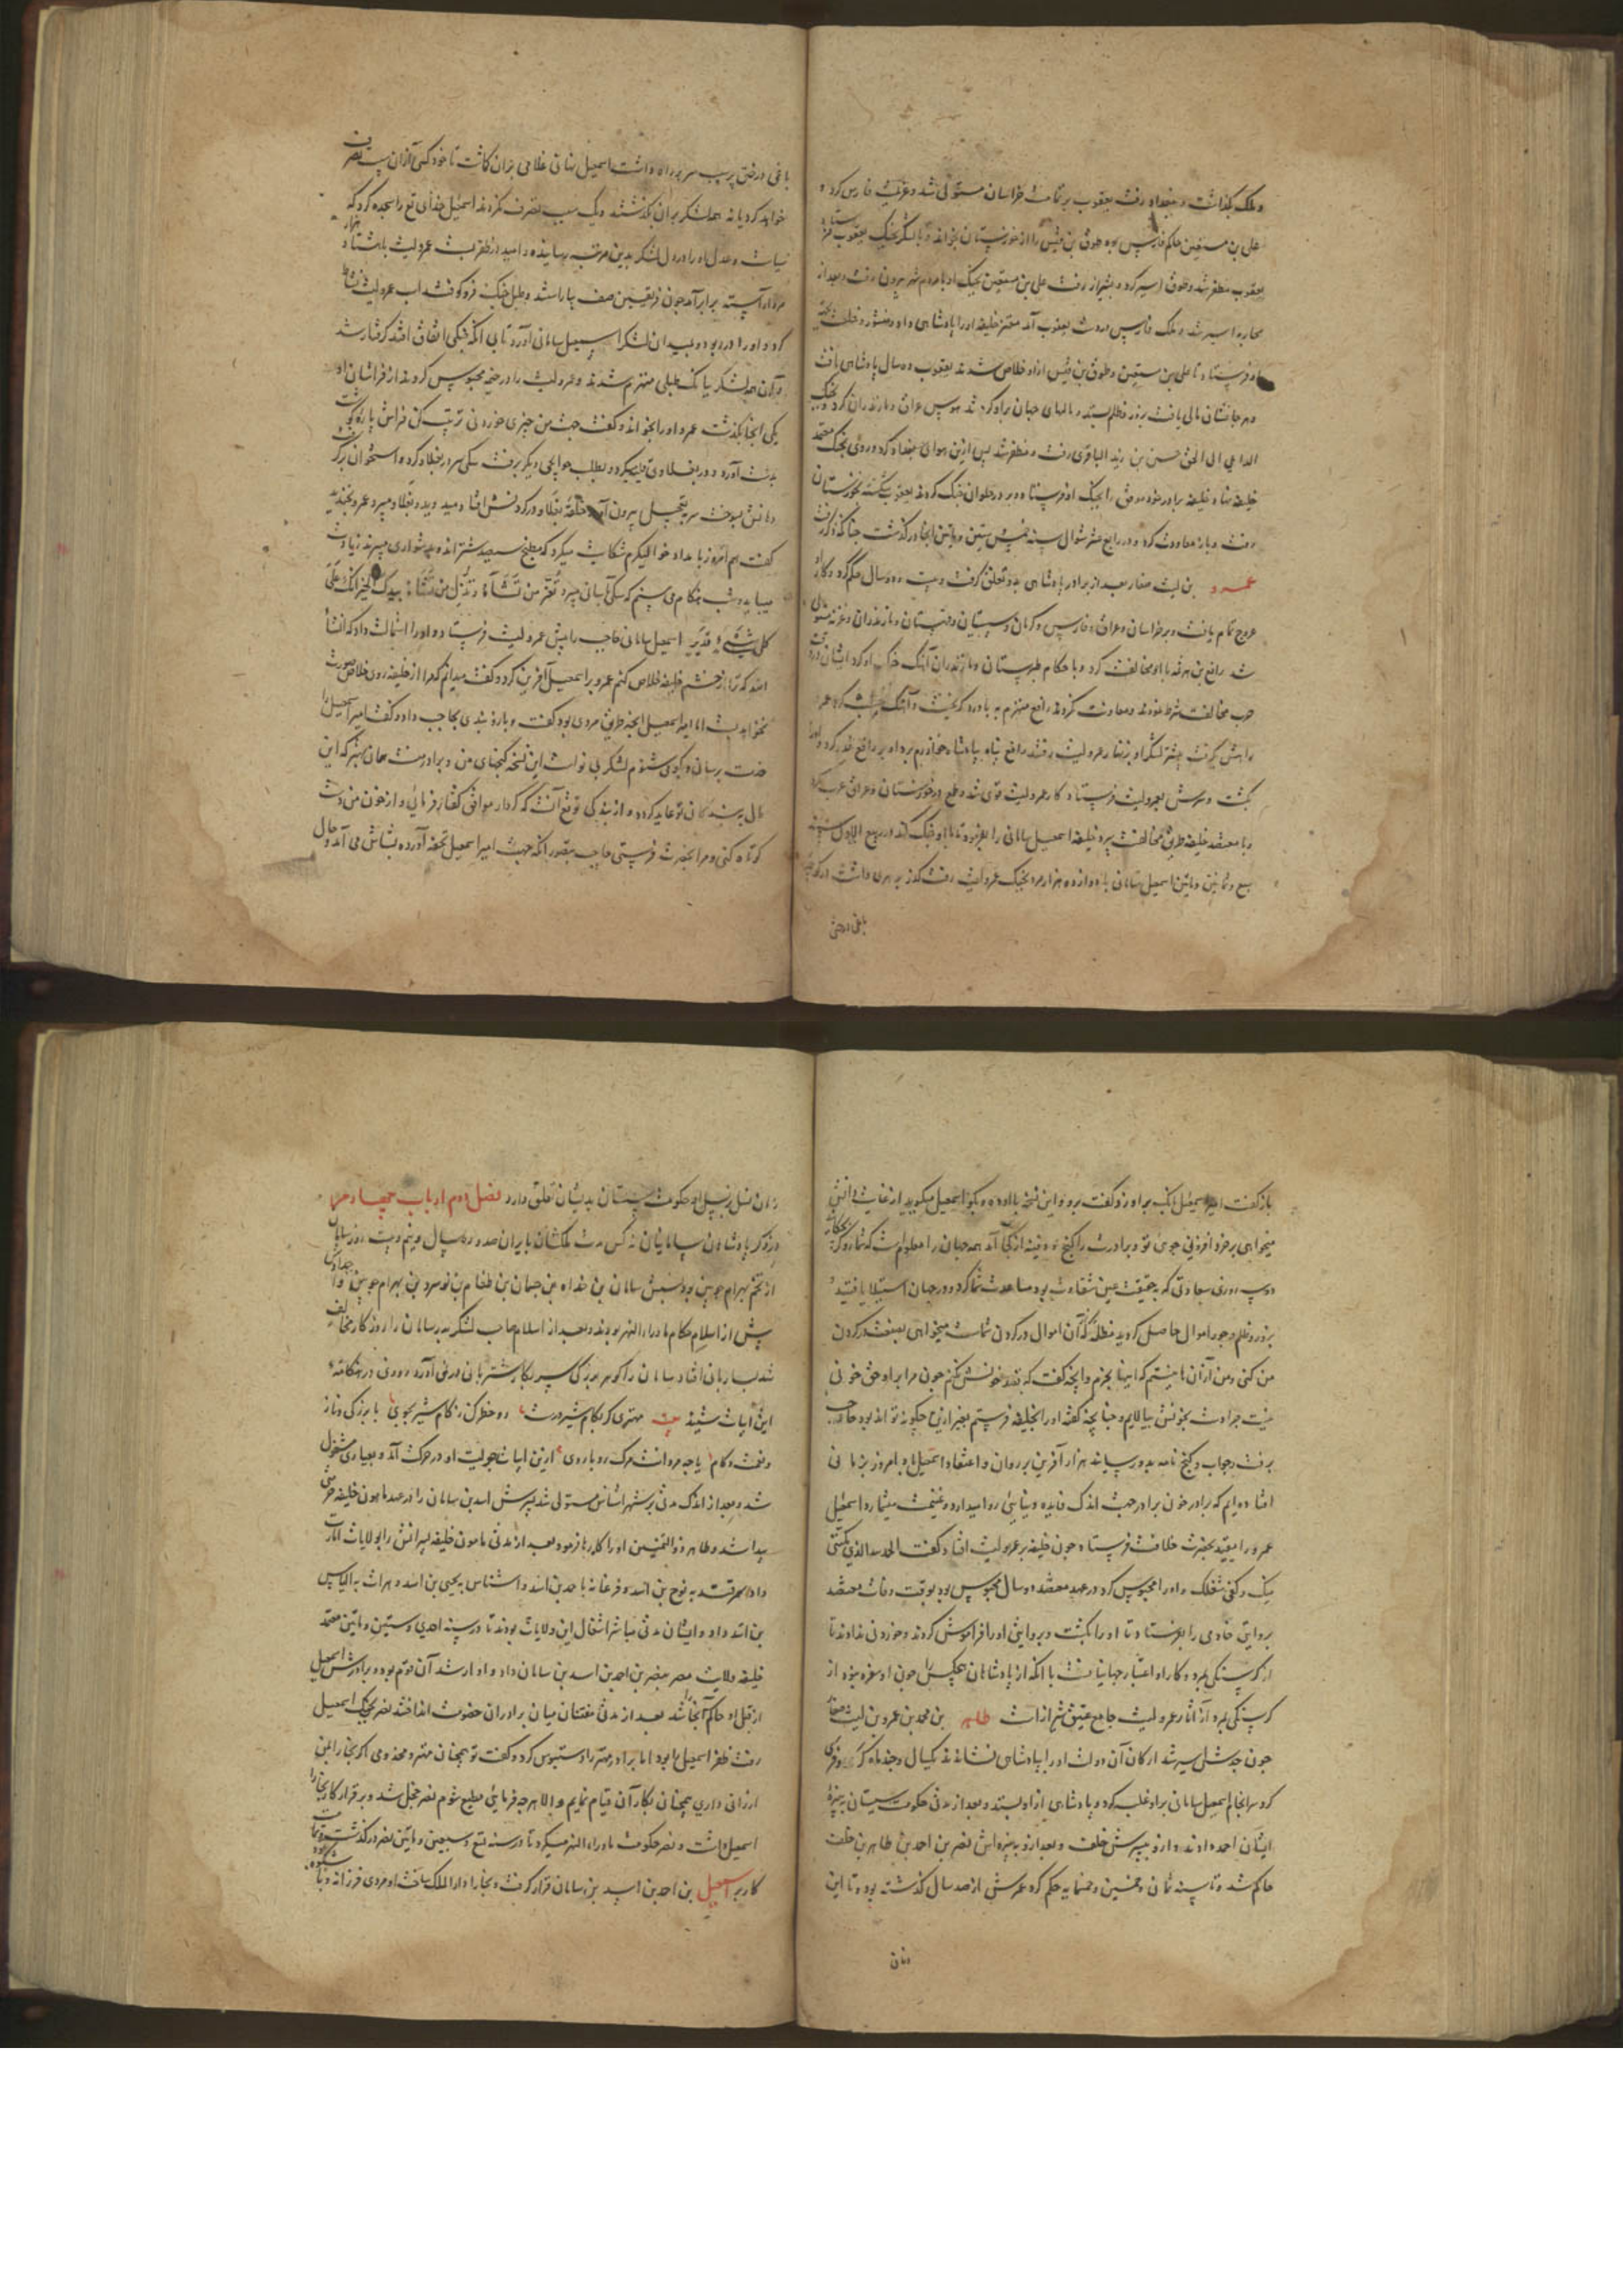 و ملک بگذاشت و ببغداد رفت یعقوب بر تمامت خراسان مستولی شد و عزیمت فارس کرد
علی بن حاکم فارس بود طوق بن را از خوزستان بخواند و با لشکر بجنگ یعقوب
یعقوب مظفر شد و طوق اسیر کرد و بشیراز رفت علی بن بجنگ او با مردم شهر بیرون رفت و بعد از
محاربه اسیر شد و ملک فارس بدست یعقوب آمد معتز خلیفه او را پادشاهی داد و منشور و خلعت
فرستاد تا علی بن و طوق بن ازو خلاص شدند یعقوب ده سال پادشاهی
و هر جا نشان مالی یافت بزور و ظلم بستد و مالهای جهان برو گرد شد هوس عراق و مازندران کرد و بجنگ
الداعی الی الحق حسن بن زید الباقری رفت و مظفر شد پس ازین هوای بغداد کرد و روی بجنگ معتمد
خلیفه نهاد خلیفه برادر خود موفق را بجنگ او فرستاد و بر در حلوان جنگ کردند یعقوب شکسته بخوزستان
رفت و باز معاودت کرد و در رابع عشر شوال سنه خمس ستین و مایتین آنجا درگذشت چنانکه ذکر رفت
عمرو بن لیث صفار بعد از برادر پادشاهی بدو تعلق گرفت و بیست و دو سال حکم کرد و کار او
عروج تمام یافت و بر خراسان و عراق و فارس و کرمان و سیستان و قهستان و مازندران و غزنه مستولی
شد رافع بن هرثمه با او مخالفت کرد و با حکام طبرستان و مازندران آهنگ او کرد ایشان در
حرب مخالفت شرط نمودند و معاونت نکردند رافع منهزم به باورد گریخت و آهنگ کرد عمر
راهش گرفت بیشتر لشکر او بزنهار عمرولیث رفتند رافع پناه بپادشاه خوارزم برد او بر رافع غدر کرد و او را
بکشت و سرش بعمرولیث فرستاد کار عمرولیث قوی شد و طمع در خوزستان و عراق عرب کرد
و با معتضد خلیفه طریق مخالفت سپرد خلیفه اسمعیل سامانی را بفرمود تا با او جنگ کند در ربیع الاول سنه
سبع و ثمانین و مایتین اسمعیل سامانی با دوازده هزار مرد بجنگ عمرولیث رفت گذر بر هری داشت
باغی درختی
باغی درختی پر سیب سر بر راه داشت اسمعیل سامانی غلامی بران گماشت تا خود کسی از آن سیب تصرف
خواهد کرد یا نه همه لشکر بر آن بگذشتند و یک سیب تصرف نکردند اسمعیل خدای تع را سجده کرد که
سیاست و عدل او را در دل لشکر بدین مرتبه رسانیده و امید از ظفر بست عمرولیث با هشتاد هزار
مرد آراسته برابر آمد چون فریقین صف بیاراستند و طبل جنگ فرو کوفتند اسب عمرولیث نشاط
کرد و او را در ربود و بمیدان لشکر اسمعیل سامانی آورد تا بی آنکه جنگی اتفاق افتد گرفتار شد
و آن همه لشکر بیانگ طبلی منهزم شدند و عمرولیث را در خیمه محبوس کردند از فراشان او
یکی آنجا بگذشت عمرو او را بخواند و گفت جهت من چیزی خوردنی ترتیب کن فراش پاره گوشت
بدست آورد و در بغلاوی قلیه میکرد و بطلب حوایجی دیگر برفت سگی سر در بغلاو کرد و استخوان برگرفت
دهانش بسوخت سر بتعجیل بیرون آورد حلقه بغلاو در گردنش افتاد میدوید و بغلاو میبرد عمرو بخندید
گفت هم امروز بامداد خوالیگرم شکایت میکرد که مطبخ سیصد شتر اند و بدشواری میبرند زیادت
میباید و شب هنگام می بینم که سگی بآسانی میبرد تعز من تشاء و تذل من تشاء بیدک الخیر انک علی
کل شیء قدیر اسمعیل سامانی حاجب را پیش عمرولیث فرستاد و او را استمالت داد که انشا
الله که ترا از خشم خلیفه خلاص کنم عمرو بر اسمعیل آفرین کرد و گفت میدانم که مرا از خلیفه روی خلاص صورت
نخواهد بست اما امیر اسمعیل آنچه طریق مردمی بود گفت و بازوبندی بحاجب داد و گفت امیر اسمعیل را
خدمت برسان و بگوی شنودم لشکر بی نواست این نسخه گنجهای من و برادرست همان بهتر که این
مال به بندگان تو عاید گردد و از بندگی توقع آنست که کردار موافق گفتار فرمائی و از خون من دست
کوتاه کنی و مرا بحضرت فرستی حاجب بتصور آنکه جهت امیر اسمعیل تحفه آورده بشاش می آمد و حال
باز گفت امیر اسمعیل بانگ بر او زد و گفت برو و این نسخه با او ده و بگو اسمعیل میگوید از غایت دانش
میخواهی بر خرد افزونی جوئی تو و برادرت را گنج و دفینه از کجا آمد همه جهان را معلومست که شما رویگر
دو سه روزی سعادتی که بحقیقت عین شقاوت بود مساعدت شما کرد و در جهان استیلا یافتید و
بزور و ظلم و جور اموال حاصل کردید مظلمه آن اموال در گردن شماست میخواهی بعنف در گردن
من کنی و من از آن نیستم که اینها بخرم و آنچه گفت که بقصد خونش نکنم چون مرا بر او حق خونی
نیست چرا دست بخونش بیالایم و چنانچه گفته او را بخلیفه فرستم بغیر ازین چگونه تواند بود حاجب
برفت و جواب و گنج نامه بدو رسانید هزار آفرین بر روان و اعتقاد اسمعیل باد امروز بزمانی
افتاده ایم که برادر خون برادر جهت اندک فایده دنیائی روا میدارد و غنیمت میشمارد اسمعیل
عمرو را مقید بحضرت خلافت فرستاد چون خلیفه بر عمرولیث افتاد گفت الحمد لله الذی مکننی
منک و کفی شغلک و او را محبوس کرد در عهد معتضد دو سال محبوس بود بوقت وفات معتضد
بروایتی خادمی را بفرستاد تا او را بکشت و بروایتی او را فراموش کردند و خوردنی ندادند تا
از گرسنگی بمرد و کار او اعتبار جهانیانست با آنکه از پادشاهان هیچکس را چون او سفره نبود از
گرسنگی بمرد از آثار عمرولیث جامع عتیق شیراز است طاهر بن محمد بن عمرو بن لیث صفار
چون جدش اسیر شد ارکان آن دولت او را بپادشاهی نشاندند یکسال و چند ماه کر و فری
کرد سرانجام اسمعیل سامانی بر او غلبه کرد و پادشاهی ازو بستد و بعد از مدتی حکومت سیستان به نبیره
ایشان احمد دادند و ازو به پسرش خلف و بعد ازو به نبیره اش نصر بن احمد بن طاهر بن خلف
حاکم شد و تا سنه ثمان و خمسین و خمسمایه حکم کرد عمرش از صد سال گذشته بود و تا این
زمان
زمان نسل بنسل او حکومت سیستان بدیشان تعلق دارد فصل دوم از باب چهارم
در ذکر پادشاهان سامانیان نه کس مدت ملکشان بایران صد و دو سال و نیم و بیست روز سامان
از تخم بهرام چوبین بود نسبش سامان بن خداه بن جثمان بن طغام بن نوسرد بن بهرام چوبین و اجدادش
پیش از اسلام حکام ماوراءالنهر بودند و بعد از اسلام صاحب لشکر به سامان را روزگار مخالف
شد بساربانی افتاد سامان را گوهر بزرگی سر بکار شتربانی فرو نمی آورد روزی در هنگامه
این ابیات شنید بیت مهتری گر بکام شیر درست رو خطر کن ز کام شیر بجوی یا بزرگی و ناز
و نعمت و کام یا چو مردانت مرگ رویاروی ازین ابیات حمیت او در حرکت آمد و بعیاری مشغول
شد و بعد از اندک مدتی بر شهر اشناس مستولی شد پسرش اسد بن سامان را در عهد مامون خلیفه عرضی
پیدا شد و طاهر ذوالیمینین او را کارها فرمود بعد از مدتی مامون خلیفه پسرانش را بولایات امارت
داد سمرقند به نوح بن اسد و فرغانه باحمد بن اسد و اشناس به یحیی بن اسد و هراة به الیاس
بن اسد داد و ایشان مدتی مباشر اشغال این ولایات بودند تا در سنه احدی و ستین و مایتین معتمد
خلیفه ولایت مصر بنصر بن احمد بن اسد بن سامان داد و او ارشد آن قوم بود و برادرش اسمعیل
از قبل او حاکم آنجا شد بعد از مدتی مفتنان میان برادران خصومت انداختند نصر بجنگ اسمعیل
رفت ظفر اسمعیل را بود اما برادر مهتر را دستبوس کرد و گفت تو همچنان مهتر و مخدومی اگر بخارا بمن
ارزانی داری همچنان بکار آن قیام نمایم و الا هر چه فرمائی مطیع شوم نصر خجل شد و بر قرار کار بخارا
اسمعیل داشت و نصر حکومت ماوراءالنهر میکرد تا در سنه تسع و سبعین و مایتین نصر درگذشت
کار بر اسمعیل بن احمد بن اسد بن سامان قرار گرفت و بخارا دارالملک ساخت او مردی فرزانه و با شکوه